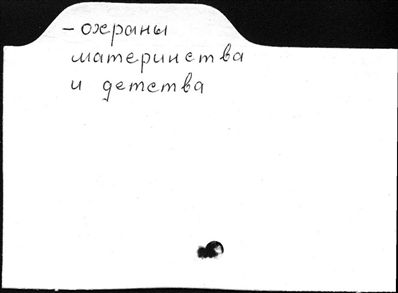 - охраны
материнства
и детства